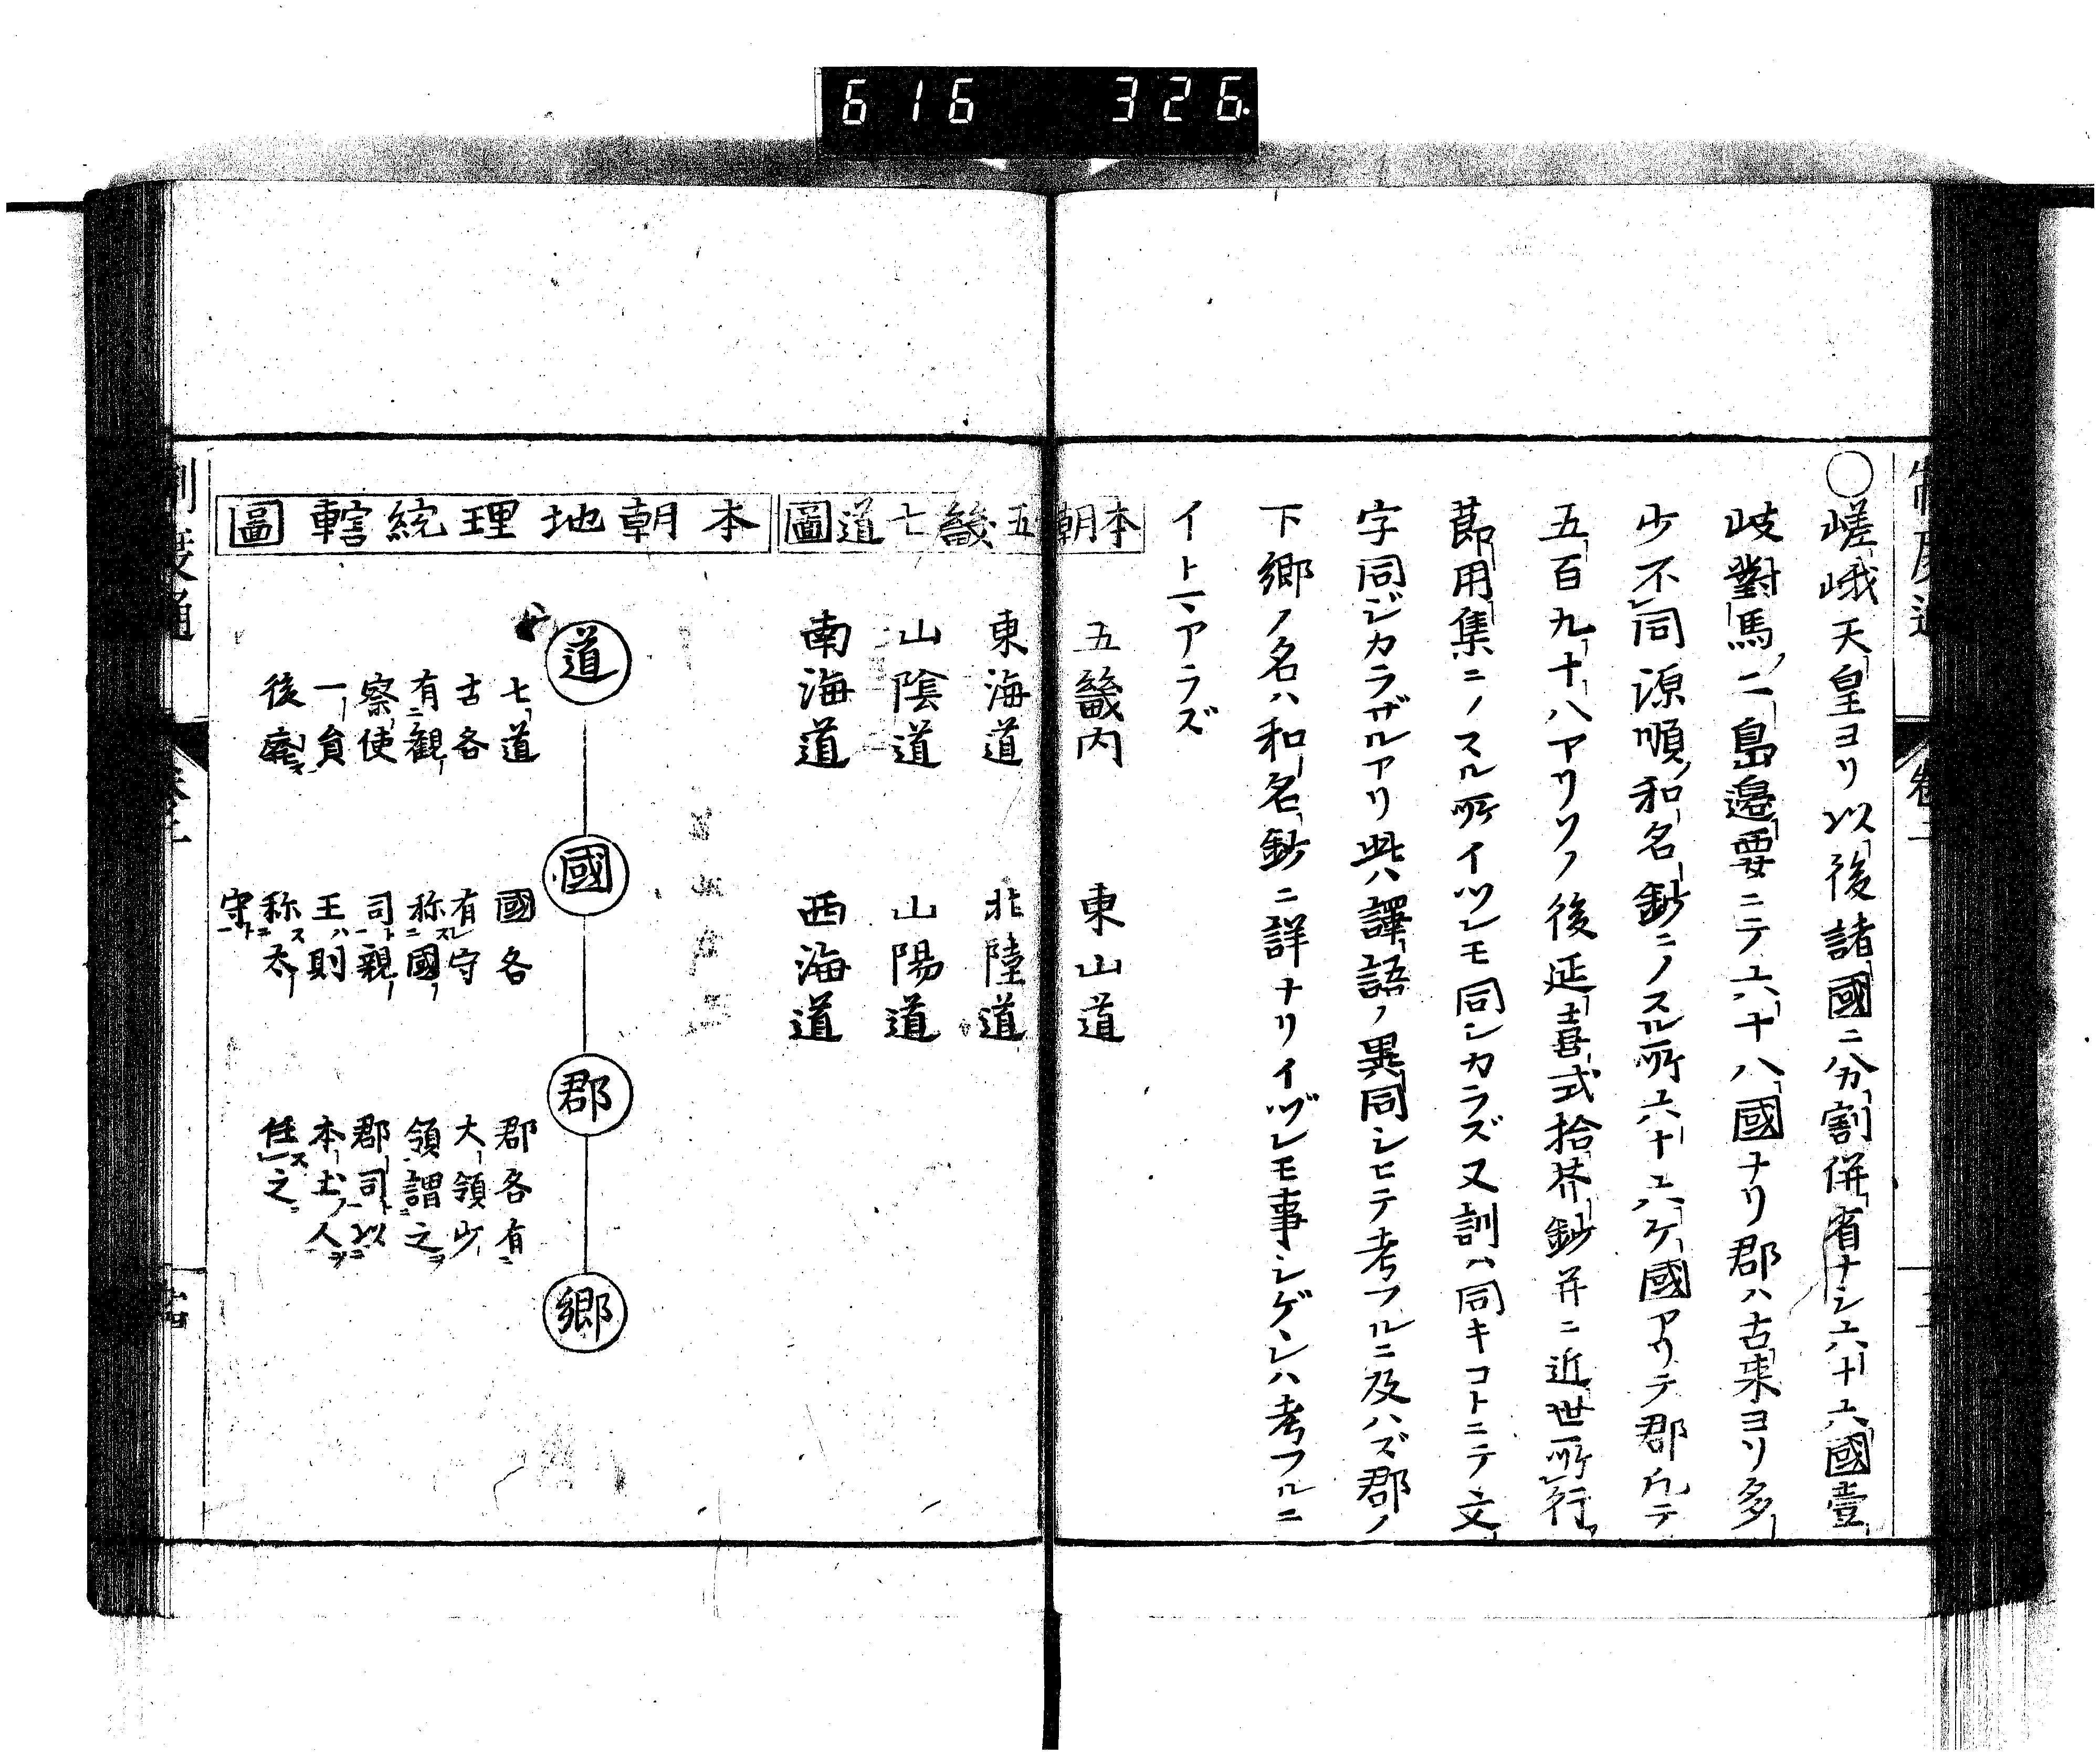 616 326.
○嵯峨天皇ヨリ以後諸國ニ分割併省ナシ六十六國壹
岐對馬ノ二島邊要ニテ六十八國ナリ郡ハ古来ヨリ多
少不同源順ノ和名鈔ニノスル所六十六ケ國アリテ郡凡テ
五百九十八アリソノ後延喜式拾芥鈔并ニ近世所行
節用集ニノスル所イツレモ同シカラズ又訓ハ同キコトニテ文
字同ジカラザルアリ此ハ譯語ノ異同シヒテ考フルニ及ハズ郡ノ
下郷ノ名ハ和名鈔ニ詳ナリイヅレモ事シゲレハ考フルニ
イトマアラズ
本朝五畿七道圖
五畿内 東山道
東海道 北陸道
山陰道 山陽道
南海道 西海道
本朝地理統轄圖
道 國 郡 郷
七道
古各
有観
察使
一員
後廃
國各
有守
称國
司親
王ハ則
称太
守
郡各有
大領少
領謂之
郡司以
本土人
任之
制度通